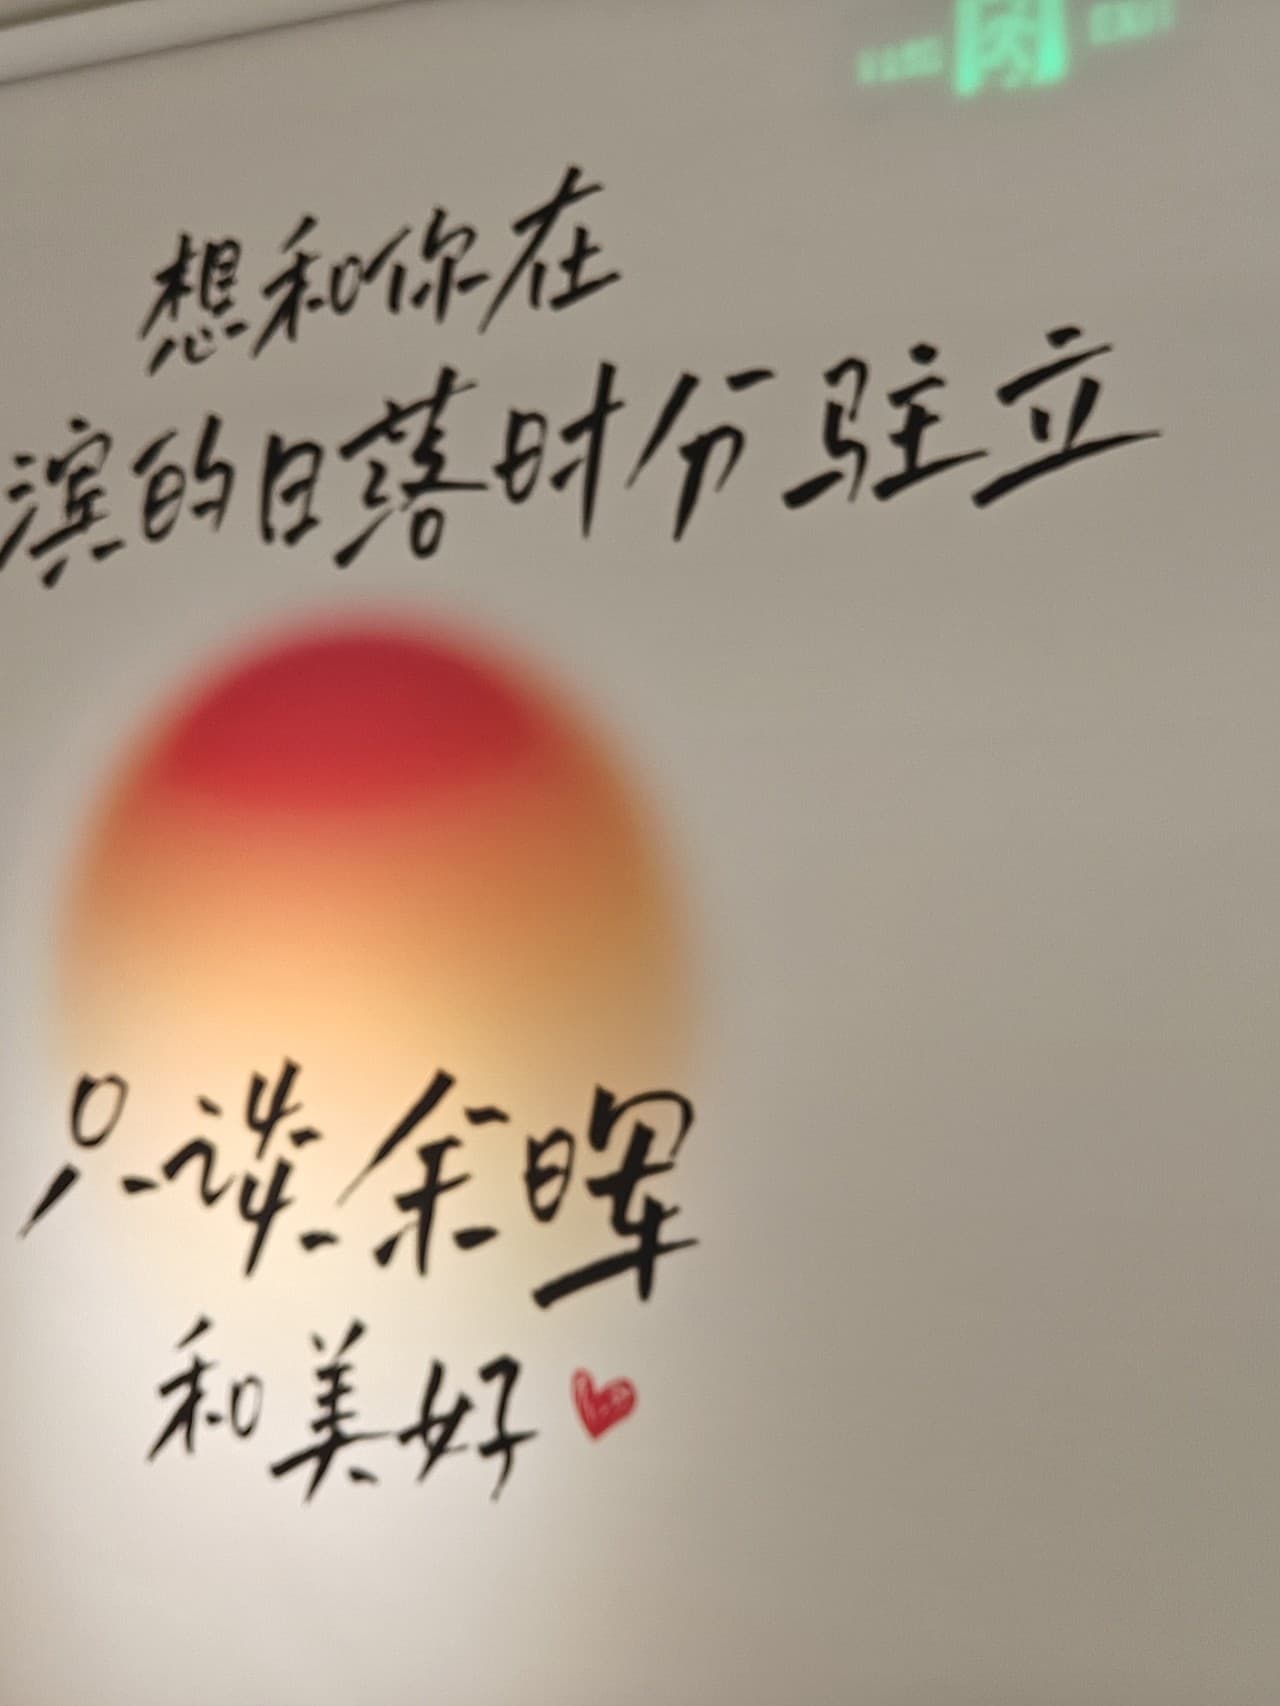 想和你在
滨的日落时分驻立
只谈余晖
和美好